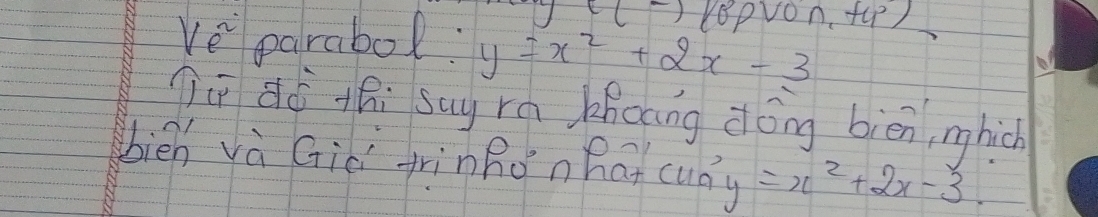 Vẽ parabol: y = x² + 2x - 3
Từ đồ thị suy ra khoảng đồng biến, nghịch
biến và Giá trị nhỏ nhất của y = x² + 2x - 3.